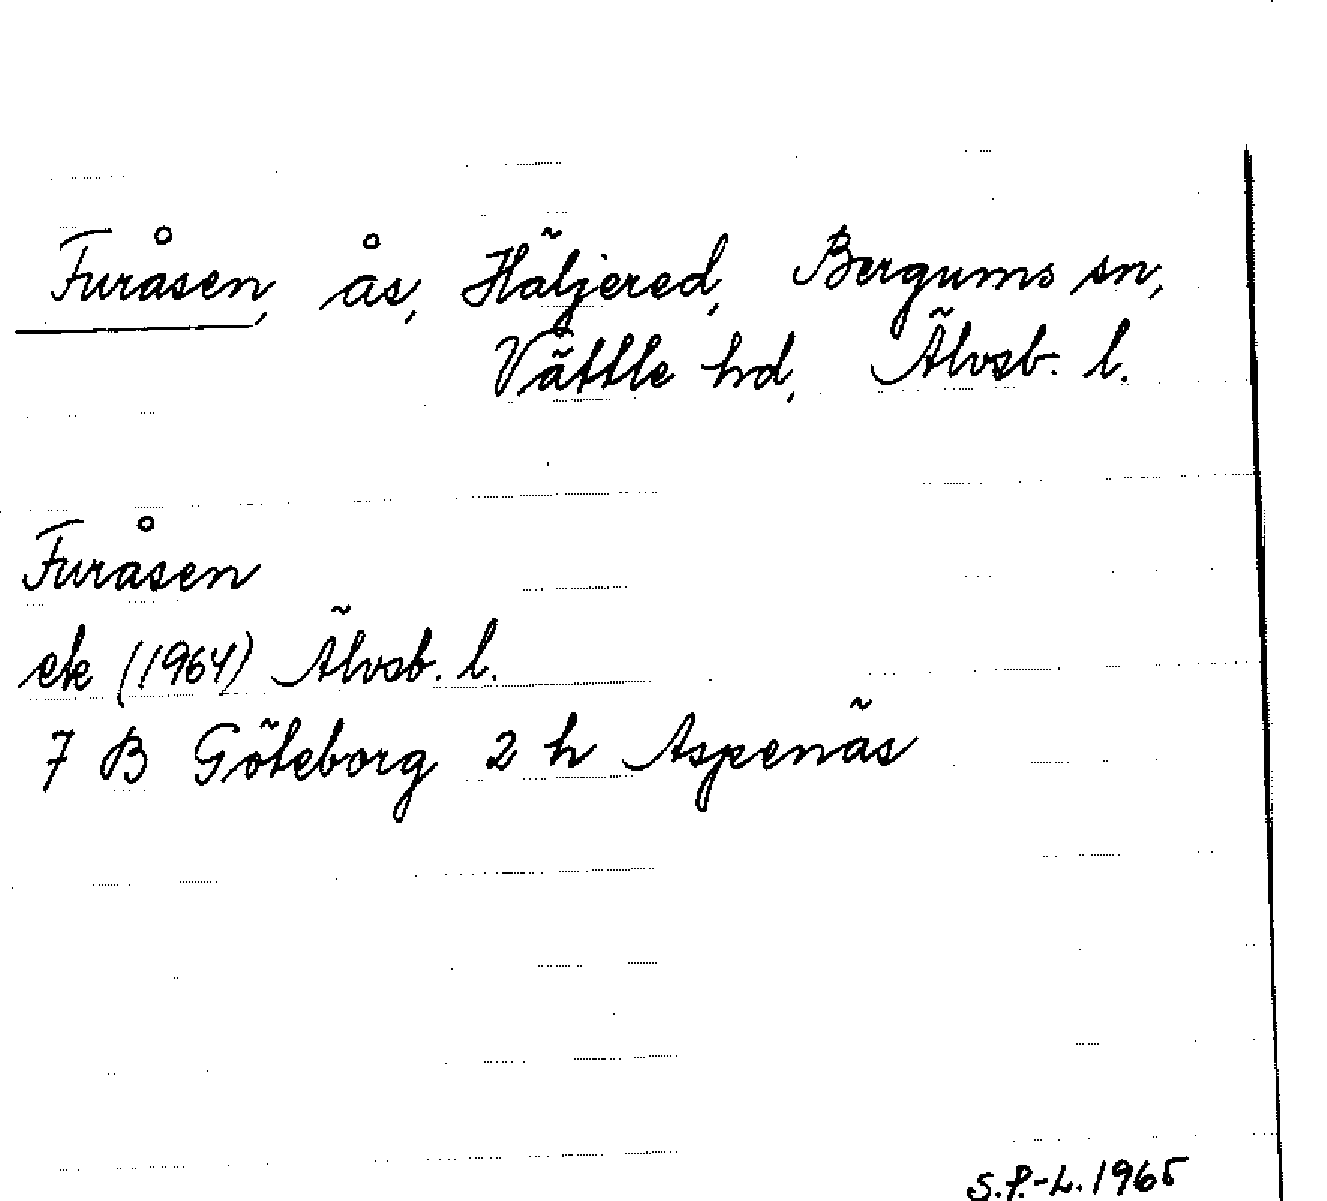 Furåsen, ås, Häljered, Bergums sn,
Vättle hd, Älvsb. l.
Furåsen
ek (1964) Älvsb. l.
7 B Göteborg 2 h Aspenäs
S.P.-L. 1965